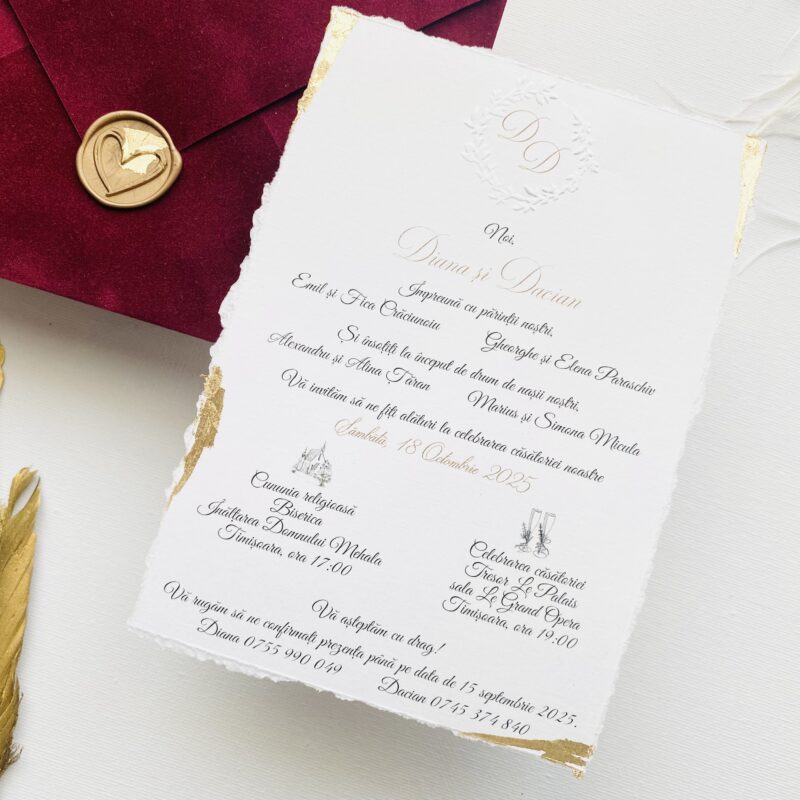 D D
Noi,
Diana și Dacian
Împreună cu părinții noștri,
Emil și Fica Crăciunoiu Gheorghe și Elena Paraschiv
Și însoțiți la început de drum de nașii noștri,
Alexandru și Alina Țăran Marius și Simona Micula
Vă invităm să ne fiți alături la celebrarea căsătoriei noastre
Sâmbătă, 18 Octombrie 2025
Cununia religioasă
Biserica
Înălțarea Domnului Mehala
Timișoara, ora 17:00
Celebrarea căsătoriei
Tresor Le Palais
sala Le Grand Opera
Timișoara, ora 19:00
Vă așteptăm cu drag!
Vă rugăm să ne confirmați prezența până pe data de 15 septembrie 2025.
Diana 0755 990 049 Dacian 0745 374 840